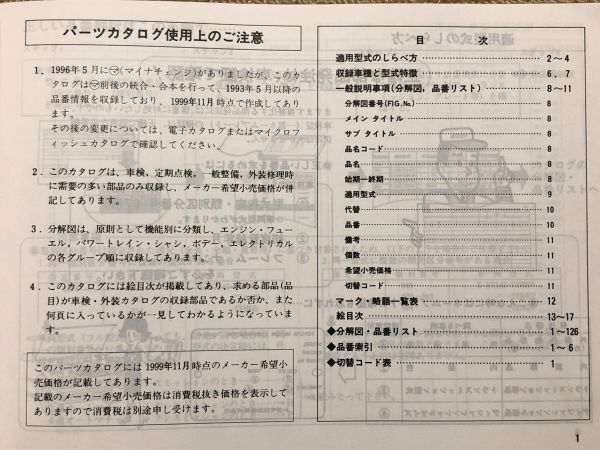 パーツカタログ使用上のご注意
1. 1996年5月に㋮(マイナチェンジ)がありましたが、このカ
タログは㋮前後の統合・合本を行って、1993年5月以降の
品番情報を収録しており、1999年11月時点で作成してあり
ます。
その後の変更については、電子カタログまたはマイクロフ
ィッシュカタログで確認してください。
2. このカタログは、車検、定期点検、一般整備、外装修理時
に需要の多い部品のみ収録し、メーカー希望小売価格が併
記してあります。
3. 分解図は、原則として機能別に分類し、エンジン・フュー
エル、パワートレイン・シャシ、ボデー、エレクトリカル
の各グループ順に収録してあります。
4. このカタログには絵目次が掲載してあり、求める部品(品
目)が車検・外装カタログの収録部品であるか否か、また
何頁に入っているかが一見してわかるようになっていま
す。
このパーツカタログには1999年11月時点のメーカー希望小
売価格が記載してあります。
記載のメーカー希望小売価格は消費税抜き価格を表示して
ありますので消費税は別途申し受けます。
目 次
適用型式のしらべ方 2~4
収録車種と型式特徴 6、7
一般説明事項(分解図、品番リスト) 8~11
分解図番号(FIG.No.) 8
メイン タイトル 8
サブ タイトル 8
品名コード 8
品名 8
始期-終期 8
適用型式 9
代替 10
品番 10
備考 11
個数 11
希望小売価格 11
切替コード 11
マーク・略語一覧表 12
絵目次 13~17
◆分解図・品番リスト 1~126
◆品番索引 1~6
◆切替コード表 1
1